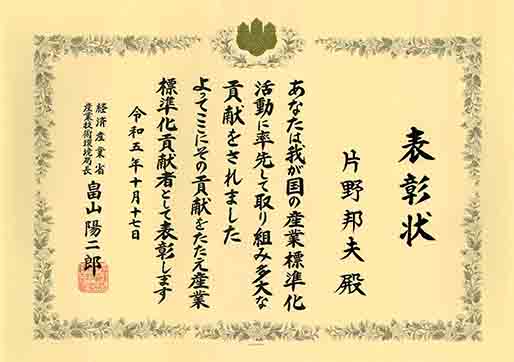 表彰状
片野邦夫殿
あなたは我が国の産業標準化
活動に率先して取り組み多大な
貢献をされました
よってここにその貢献をたたえ産業
標準化貢献者として表彰します
令和五年十月十七日
経済産業省
産業技術環境局長
畠山陽二郎